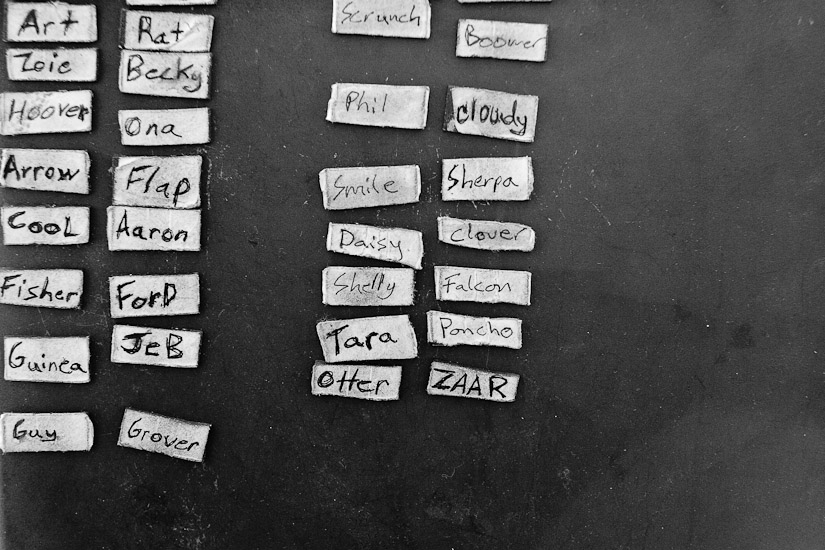 Art
Zoie
Hoover
Arrow
CooL
Fisher
Guinea
Guy
Rat
Becky
Ona
Flap
Aaron
ForD
JeB
Grover
Scrunch
Phil
Smile
Daisy
Shelly
Tara
Otter
Boomer
cloudy
Sherpa
clover
Falcon
Poncho
ZAAR